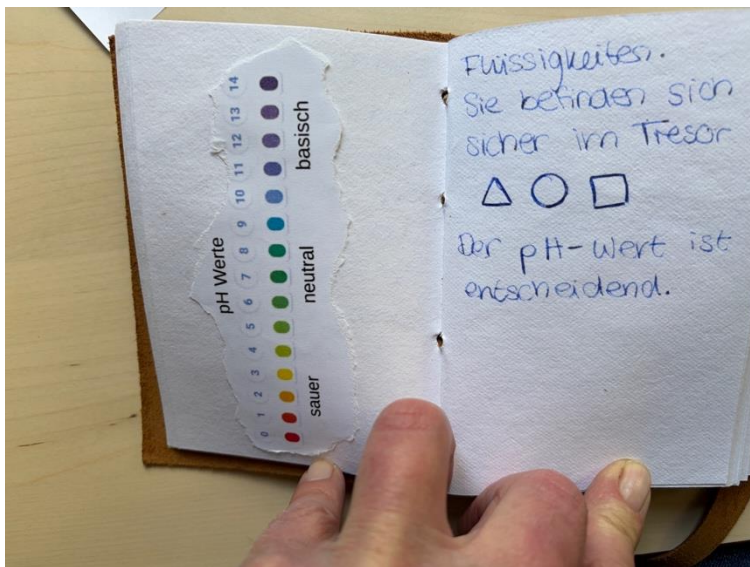 pH Werte
0 1 2 3 4 5 6 7 8 9 10 11 12 13 14
sauer neutral basisch
Flüssigkeiten.
Sie befinden sich
sicher im Tresor
Der pH-Wert ist
entscheidend.